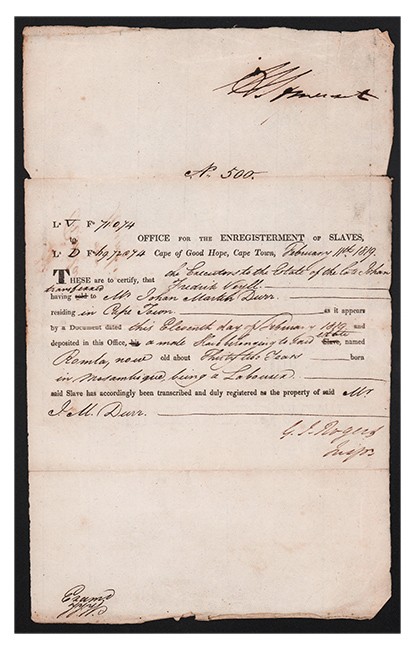 Somerset
No. 500.
L: V F: 71074
to
OFFICE FOR THE ENREGISTERMENT OF SLAVES,
L: D F: Cape of Good Hope, Cape Town, February 11th 1819.
THESE are to certify, that the Executors to the Estate of the late Johan
transferred Fredrik
having sold to Mr Johan Martin Durr.
residing in Cape Town. as it appears
by a Document dated this Eleventh day of February 1819 and
deposited in this Office, his a male Slave belonging to said estate Slave, named
Romla, now old about Thirty two Years born
in Mosambique, being a Labourer
said Slave has accordingly been transcribed and duly registered as the property of said Mr
J. M. Durr.
G. J. Rogers
Inspr
Examd